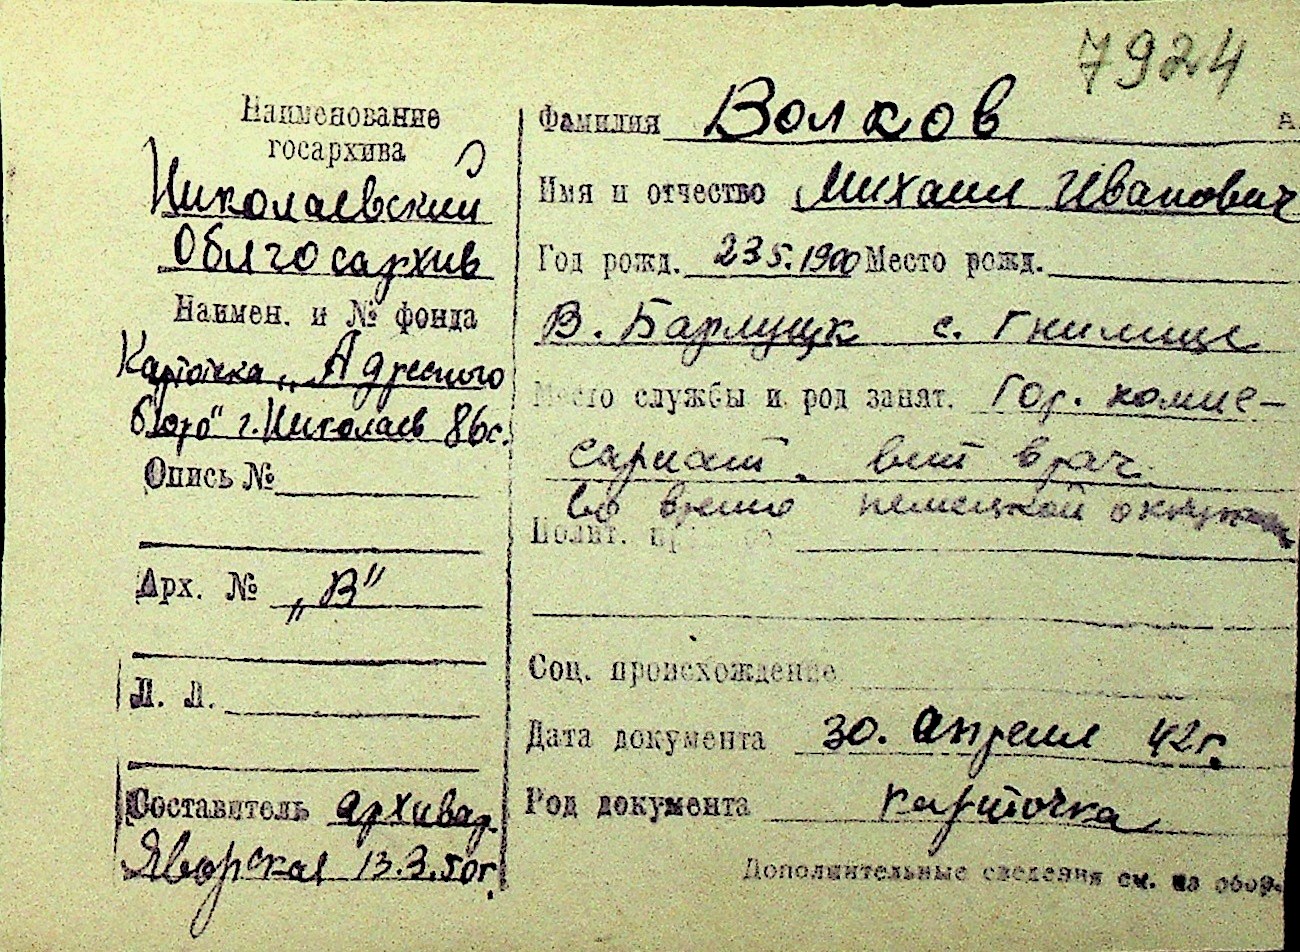 7924
Наименование
госархива
Николаевский
Облгосархив
Наимен. и № фонда
Картотека „Адресного
бюро" г. Николаев 86с.
Опись №
Арх. № „В"
Л. Л.
Составитель архивар.
Яворская 13.3.50г.
Фамилия Волков
А.
Имя и отчество Михаил Иванович
Год рожд. 23 5. 1900 Место рожд.
В. Барлуцк с. Гнилице
Место службы и род занят. Гор. комис-
сариат. вет врач.
во время немецкой
Полит.
Соц. происхождение
Дата документа 30. апреля 42г.
Род документа карточка
Дополнительные сведения см. на обор.